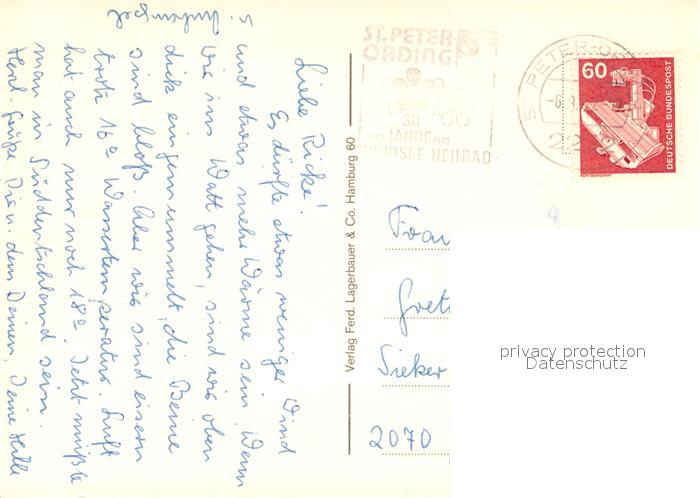 Liebe Ricke!
Es dürfte etwas weniger Wind
und etwas mehr Wärme sein. Wenn
wir ins Watt gehen, sind wir oben
dick eingemummelt, die Beine
sind bloß. Aber wir sind eisern
trotz 16° Wassertemperatur. Luft
hat auch nur noch 18°. Jetzt müßte
man in Süddeutschland sein.
Herzl. Grüße Dir u. den Deinen, Deine
Verlag Ferd. Lagerbauer & Co. Hamburg 60
ST. PETER-
ORDING
30
JAHRE
NORDSEE-HEILBAD
ST. PETER-OR
60
DEUTSCHE BUNDESPOST
Frau
Gret
Sieker
2070
privacy protection
Datenschutz